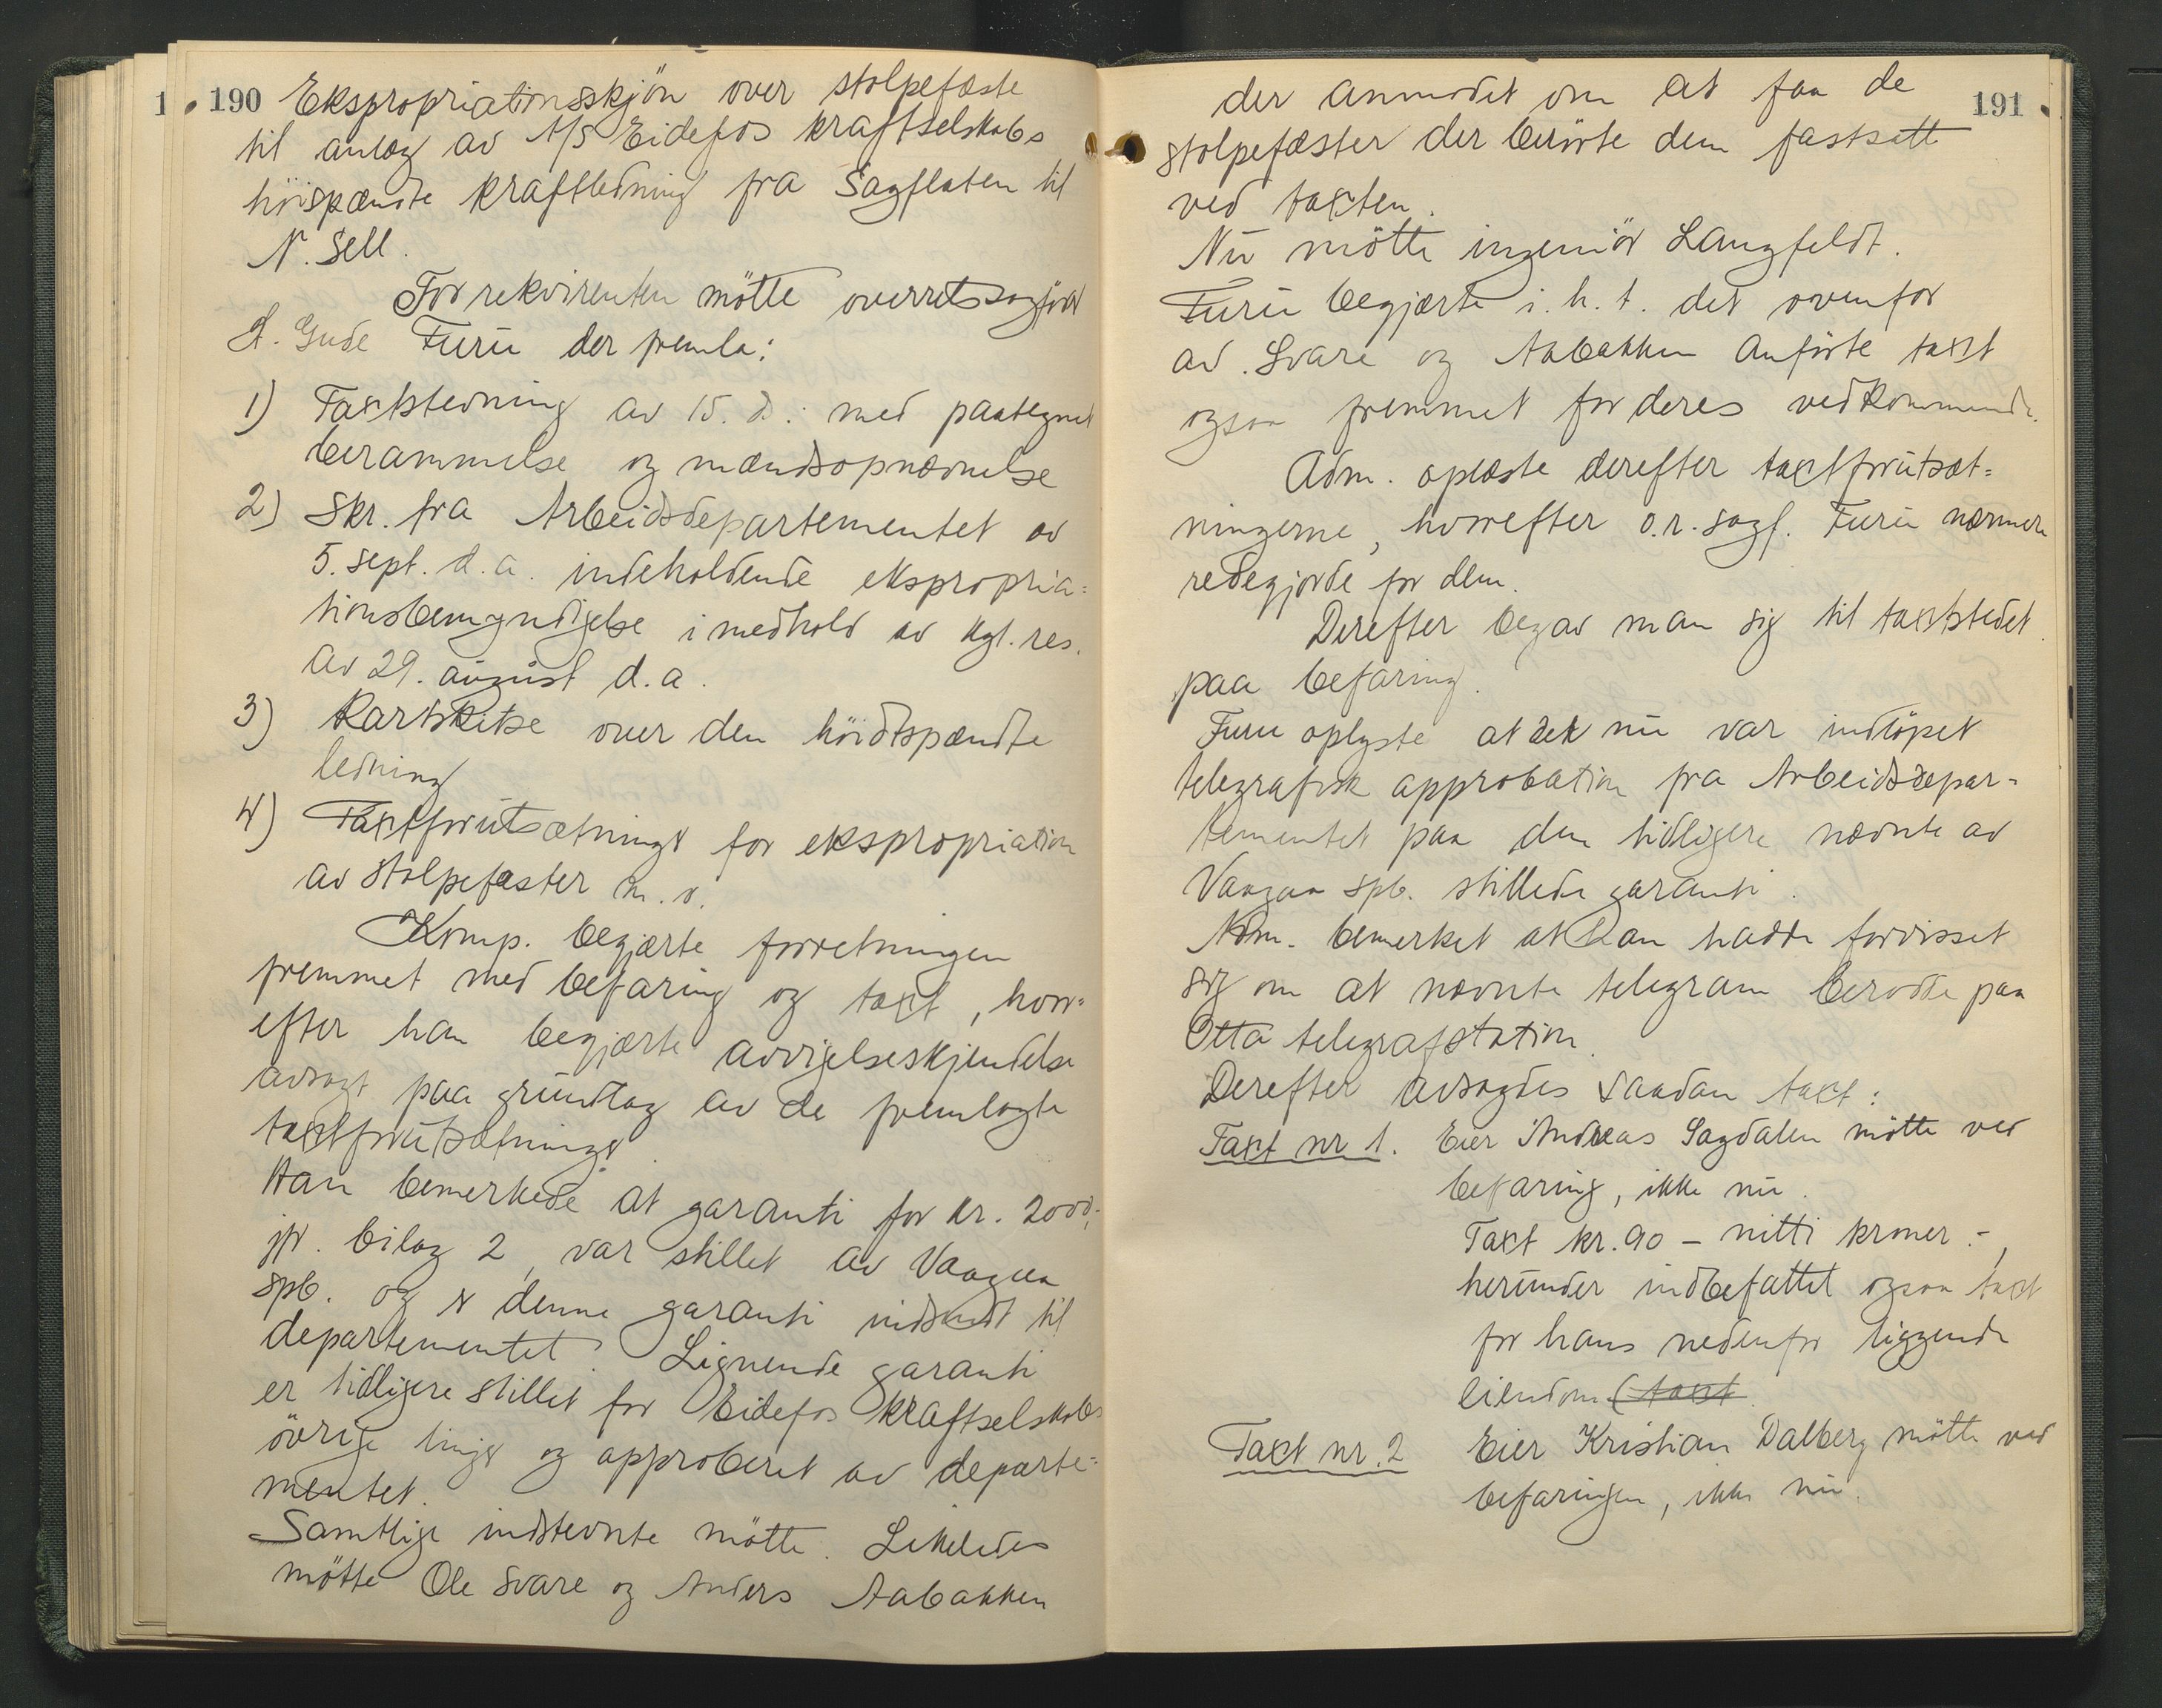 190 Ekspropriationsskjön over stolpefæste
til anlæg av A/S Eidefos kraftselskabs
höispændte kraftledning fra Sagflaten til
N. Sell.
For rekvirenten mötte overretssagförer
H. Gude Furu der fremla:
1) Taxtstevning av 15. ds. med paategnet
berammelse og mændsopnævnelse
2) Skr. fra Arbeidsdepartementet av
5. sept. d.a. indeholdende ekspropria=
tionsbemyndigelse i medhold av kgl. res.
av 29. august d.a.
3) Kartskitse over den höidtspændte
ledning
4) Taxtforutsætninger for ekspropriation
av stolpefæster m.v.
Komp. begjærte forretningen
fremmet med befaring og taxt, hvor=
efter han begjærte avvigelseskjendelse
avsagt paa grundlag av de fremlagte
taxtforutsætninger.
Han bemerkede at garanti for kr. 2000,-
jfr. bilag 2, var stillet av Vaagaa
spb. og er denne garanti indsendt til
departementet. Lignende garanti
er tidligere stillet for Eidefos kraftselskabs
övrige linjer og approberet av departe=
mentet.
Samtlige indstevnte mötte. Likeledes
mötte Ole Svare og Anders Aabakken
191
der anmodet om at faa de
stolpefæster der berörte dem fastsatt
ved taxten.
Nu mötte ingeniör Langfeldt.
Furu begjærte i.h.t. det ovenfor
av Svare og Aabakken anförte taxt
ogsaa fremmet for deres vedkommende.
Adm. oplæste derefter taxtforutsæt=
ningerne, hvorefter o.r.sagf. Furu nærmere
redegjorde for dem.
Derefter begav man sig til taxtstedet
paa befaring.
Furu oplyste at det nu var indlöpet
telegrafisk approbation fra Arbeidsdepar=
tementet paa den tidligere nævnte av
Vaagaa spb. stillede garanti.
Adm. bemerket at han hadde forvisset
sig om at nævnte telegram berodde paa
Otta telegrafstation.
Derefter avsagdes saadan taxt:
Taxt nr 1. Eier Andreas Sagdalen mötte ved
befaring, ikke nu.
Taxt kr. 90 - nitti kroner.-,
herunder indbefattet ogsaa taxt
for hans nedenfor liggende
eiendom (taxt
Taxt nr. 2 Eier Kristian Dalberg mötte ved
befaringen, ikke nu.